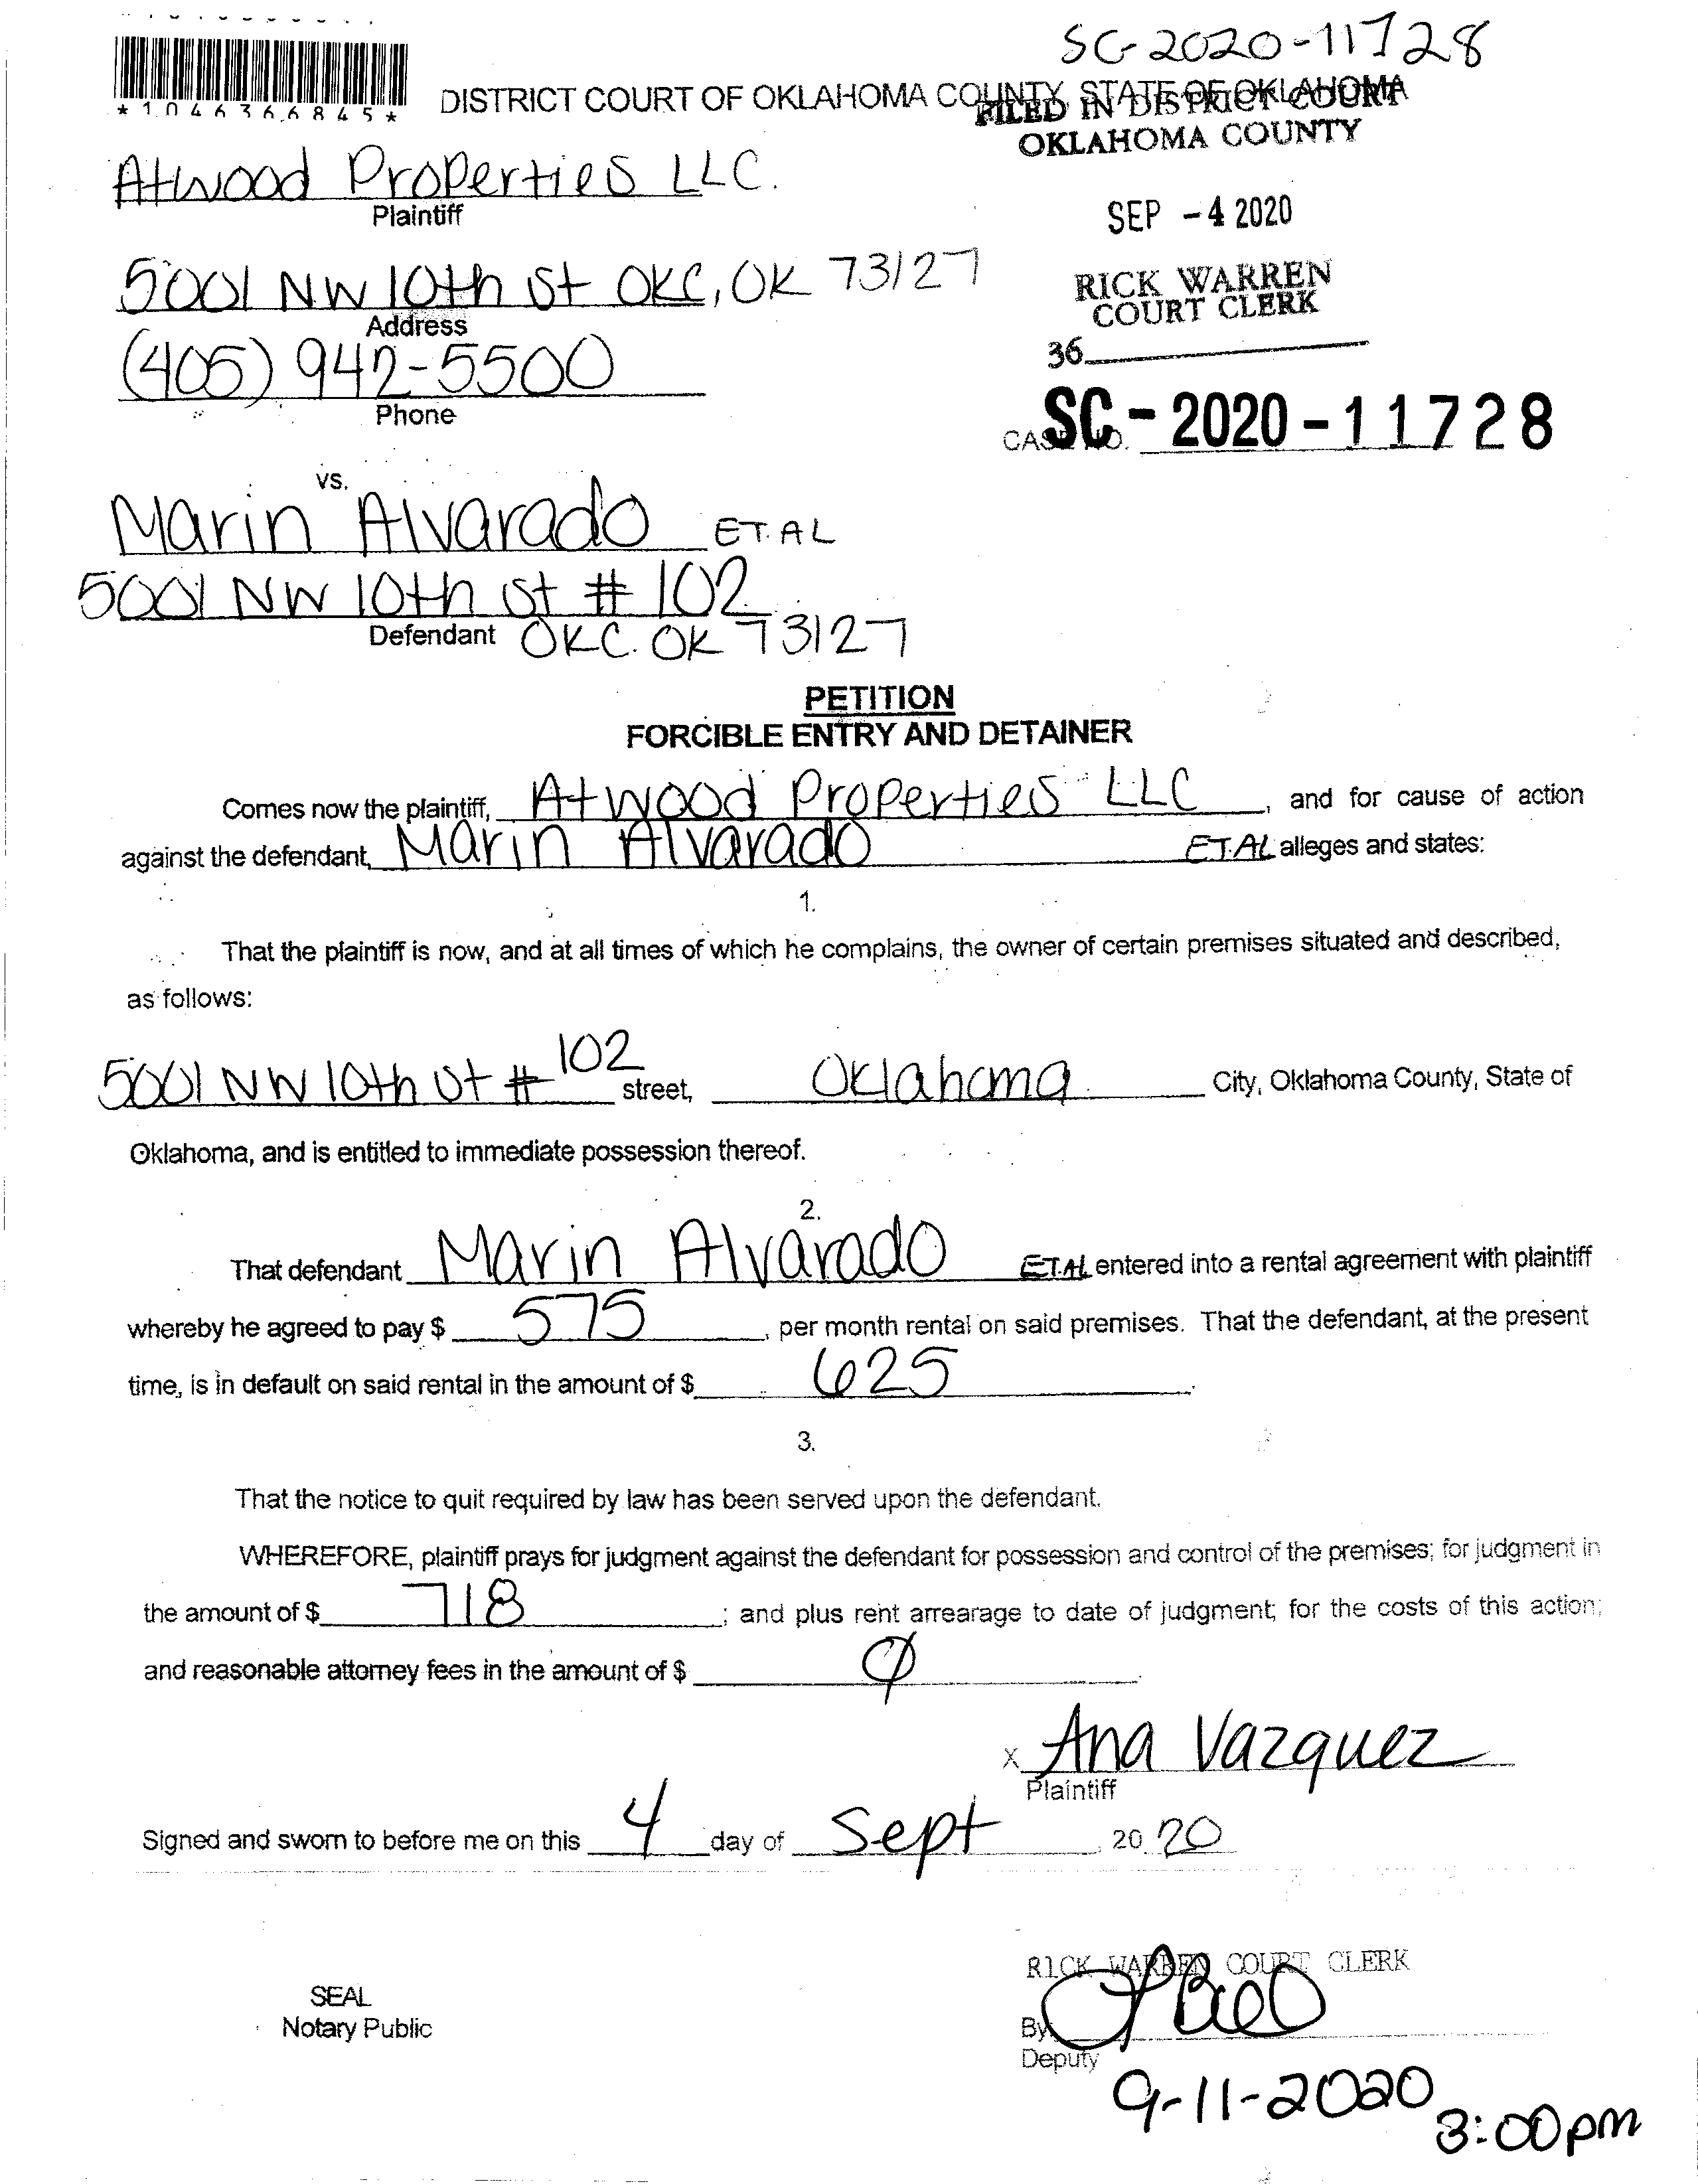 SC-2020-11728
*1046366845*
DISTRICT COURT OF OKLAHOMA COUNTY, STATE OF OKLAHOMA
FILED IN DISTRICT COURT
OKLAHOMA COUNTY
Atwood Properties LLC.
Plaintiff
SEP -4 2020
5001 NW 10th St OKC, OK 73127
Address
RICK WARREN
COURT CLERK
(405) 942-5500
Phone
36
CASE NO. SC-2020-11728
vs.
Marin Alvarado ET.AL
5001 NW 10th St # 102
Defendant OKC. OK 73127
PETITION
FORCIBLE ENTRY AND DETAINER
Comes now the plaintiff, Atwood Properties LLC, and for cause of action
against the defendant, Marin Alvarado ET.AL alleges and states:
1.
That the plaintiff is now, and at all times of which he complains, the owner of certain premises situated and described,
as follows:
5001 NW 10th St # 102 street, Oklahoma City, Oklahoma County, State of
Oklahoma, and is entitled to immediate possession thereof.
2.
That defendant Marin Alvarado ET.AL entered into a rental agreement with plaintiff
whereby he agreed to pay $ 575, per month rental on said premises. That the defendant, at the present
time, is in default on said rental in the amount of $ 625.
3.
That the notice to quit required by law has been served upon the defendant.
WHEREFORE, plaintiff prays for judgment against the defendant for possession and control of the premises; for judgment in
the amount of $ 718; and plus rent arrearage to date of judgment; for the costs of this action;
and reasonable attorney fees in the amount of $ Ø.
x Ana Vazquez
Plaintiff
Signed and sworn to before me on this 4 day of Sept, 2020
RICK WARREN COURT CLERK
SEAL
Notary Public
By
Deputy
9-11-2020
3:00pm